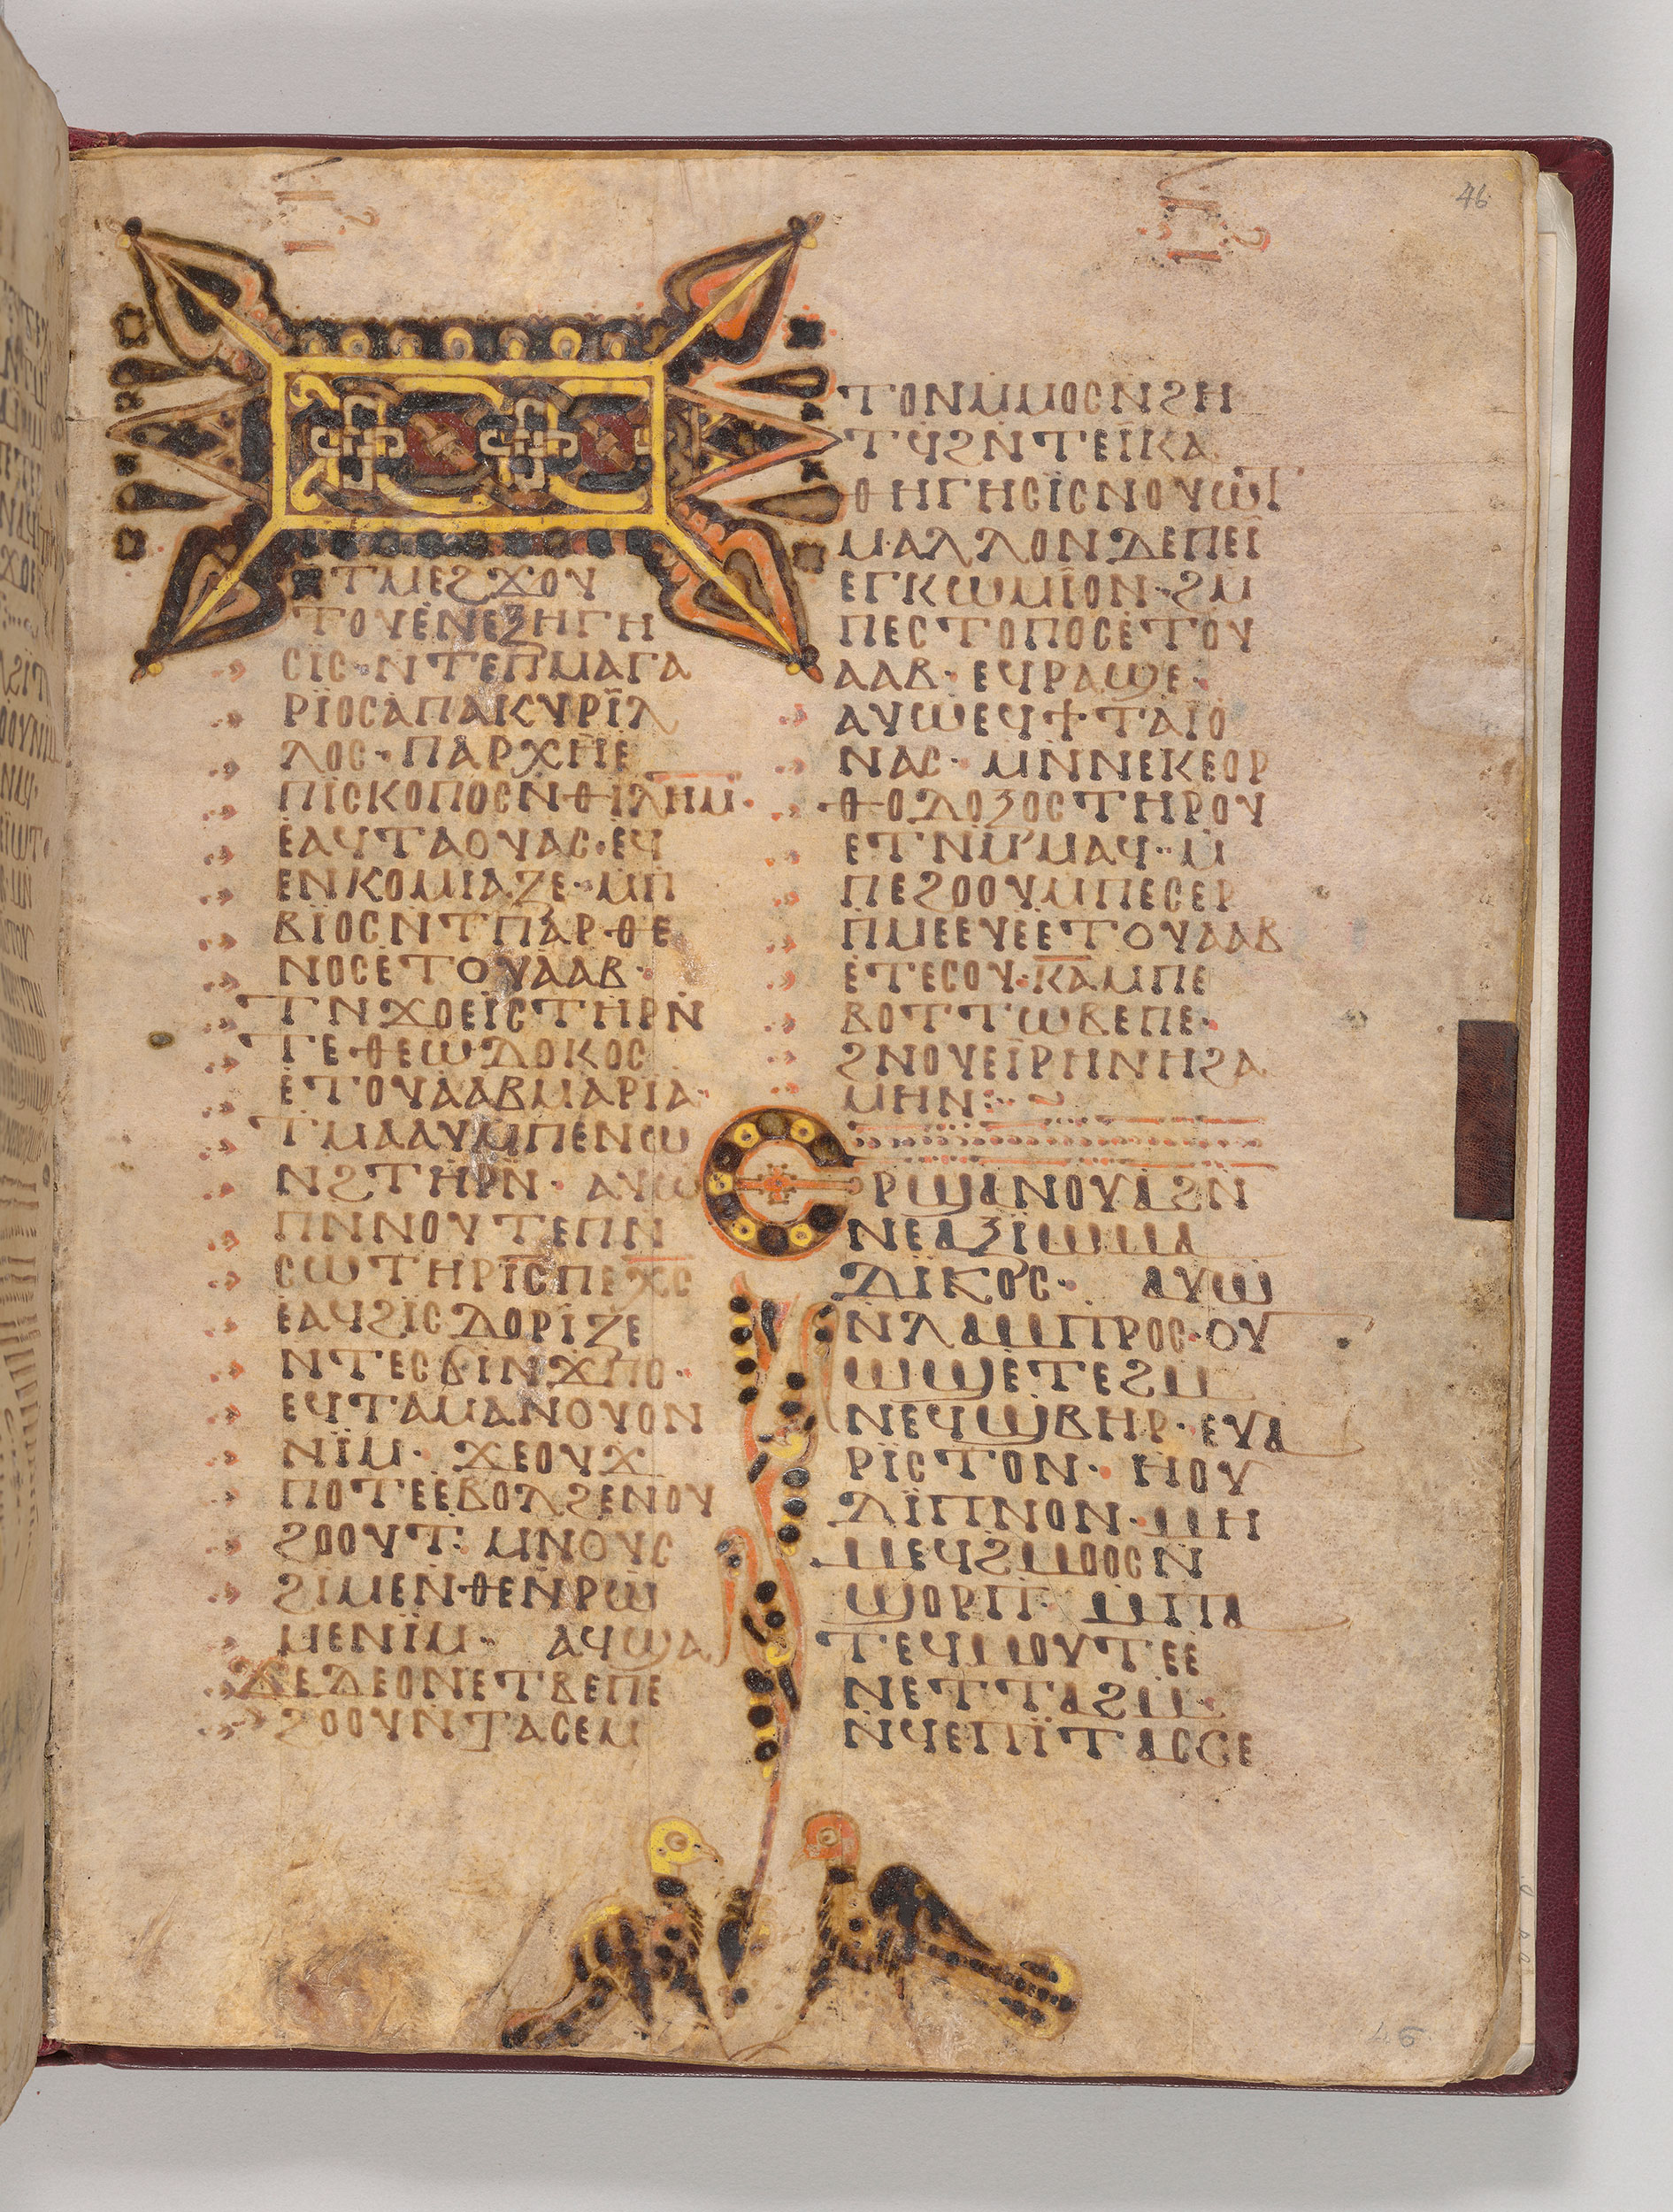 46
ⲧⲙⲉϩϫⲟⲩ
ⲧⲟⲩⲉⲛⲉⲝⲏⲅⲏ
ⲥⲓⲥ·ⲛⲧⲉⲡⲙⲁⲅⲁ
ⲣⲓⲟⲥⲁⲡⲁⲕⲩⲣⲓⲗ
ⲗⲟⲥ·ⲡⲁⲣⲭⲏⲉ
ⲡⲓⲥⲕⲟⲡⲟⲥⲛⲑⲓⲗⲏⲙ·
ⲉⲁϥⲧⲁⲟⲩⲁⲥ·ⲉϥ
ⲉⲛⲕⲟⲙⲓⲁⲍⲉ·ⲙⲡ
ⲃⲓⲟⲥⲛⲧⲡⲁⲣⲑⲉ
ⲛⲟⲥⲉⲧⲟⲩⲁⲁⲃ·
ⲧⲛϫⲟⲉⲓⲥⲧⲏⲣⲛ
ⲧⲉⲑⲉⲱⲇⲟⲕⲟⲥ
ⲉⲧⲟⲩⲁⲁⲃⲙⲁⲣⲓⲁ·
ⲧⲙⲁⲁⲩⲙⲡⲉⲛⲥⲱ
ⲛϩⲧⲏⲣⲛ· ⲁⲩⲱ
ⲡⲛⲛⲟⲩⲧⲉⲡⲛ
ⲥⲱⲧⲏⲣⲓⲥⲡⲉⲭⲥ
ⲉⲁϥϩⲓⲥⲇⲟⲣⲓⲍⲉ
ⲛⲧⲉⲥϭⲓⲛϫⲡⲟ·
ⲉϥⲧⲁⲙⲁⲛⲟⲩⲟⲛ
ⲛⲓⲙ· ϫⲉⲟⲩϫ
ⲡⲟⲧⲉⲉⲃⲟⲗϩⲉⲛⲟⲩ
ϩⲟⲟⲩⲧ: ⲙⲛⲟⲩⲥ
ϩⲓⲙⲉⲛⲑⲉⲛⲣⲱ
ⲙⲉⲛⲓⲙ· ⲁϥϣⲁ
ϫⲉⲇⲉⲟⲛⲉⲧⲃⲉⲡⲉ
ϩⲟⲟⲩⲛⲧⲁⲥⲉⲙ
ⲧⲟⲛⲙⲙⲟⲥⲛϩⲏ
ⲧϥϩⲛⲧⲉⲓⲕⲁ
ⲑⲏⲅⲏⲥⲓⲥⲛⲟⲩⲱⲧ
ⲙⲁⲗⲗⲟⲛⲇⲉⲡⲉⲓ
ⲉⲅⲕⲱⲙⲓⲟⲛ·ϩⲙ
ⲡⲉⲥⲧⲟⲡⲟⲥⲉⲧⲟⲩ
ⲁⲁⲃ· ⲉϥⲣⲁϣⲉ·
ⲁⲩⲱⲉϥϯⲧⲁⲓⲟ
ⲛⲁⲥ· ⲙⲛⲛⲉⲕⲉⲟⲣ
ⲑⲟⲇⲟⲝⲟⲥⲧⲏⲣⲟⲩ
ⲉⲧⲛⲙⲙⲁϥ·ⲙ
ⲡⲉϩⲟⲟⲩⲙⲡⲉⲥⲉⲣ
ⲡⲙⲉⲉⲩⲉⲉⲧⲟⲩⲁⲁⲃ
ⲉⲧⲉⲥⲟⲩ·ⲕⲁⲙⲡⲉ
ⲃⲟⲧⲧⲱⲃⲉⲡⲉ·
ϩⲛⲟⲩⲉⲓⲣⲏⲛⲏϩⲁ
ⲙⲏⲛ:
ⲉⲣϣⲁⲛⲟⲩⲁϩⲛ
ⲛⲉⲁⲝⲓⲱⲙⲁ
ⲇⲓⲕⲟⲥ· ⲁⲩⲱ
ⲛⲗⲁⲙⲡⲣⲟⲥ·ⲟⲩ
ⲱϣⲉⲧⲉϩⲙ
ⲛⲉϥϣⲃⲏⲣ·ⲉⲩⲁ
ⲣⲓⲥⲧⲟⲛ· ⲏⲟⲩ
ⲇⲓⲡⲛⲟⲛ·ⲙⲏ
ⲙⲉϥϩⲙⲟⲟⲥⲛ
ϣⲟⲣⲡ· ⲙⲡⲁ
ⲧⲉϥⲙⲟⲩⲧⲉⲉ
ⲛⲉⲧⲧⲁϩⲙ·
ⲛϥⲉⲡⲓⲧⲁⲥⲥⲉ
46